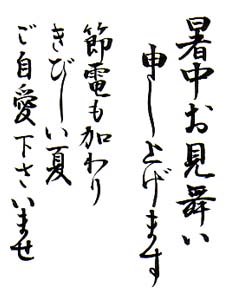 暑中お見舞い
申し上げます
節電も加わり
きびしい夏
ご自愛下さいませ